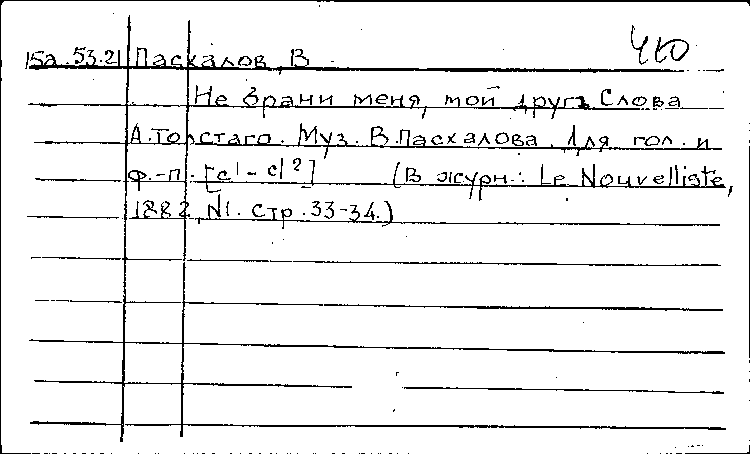 15а.53.21 Пасхалов, В
Не брани меня, мой другъ Слова
А.Толстаго. Муз. В.Пасхалова. Для гол. и
ф.-п. [c¹ - c|²] (В журн.: Le Nouvelliste,
1882, N1. стр. 33-34.)